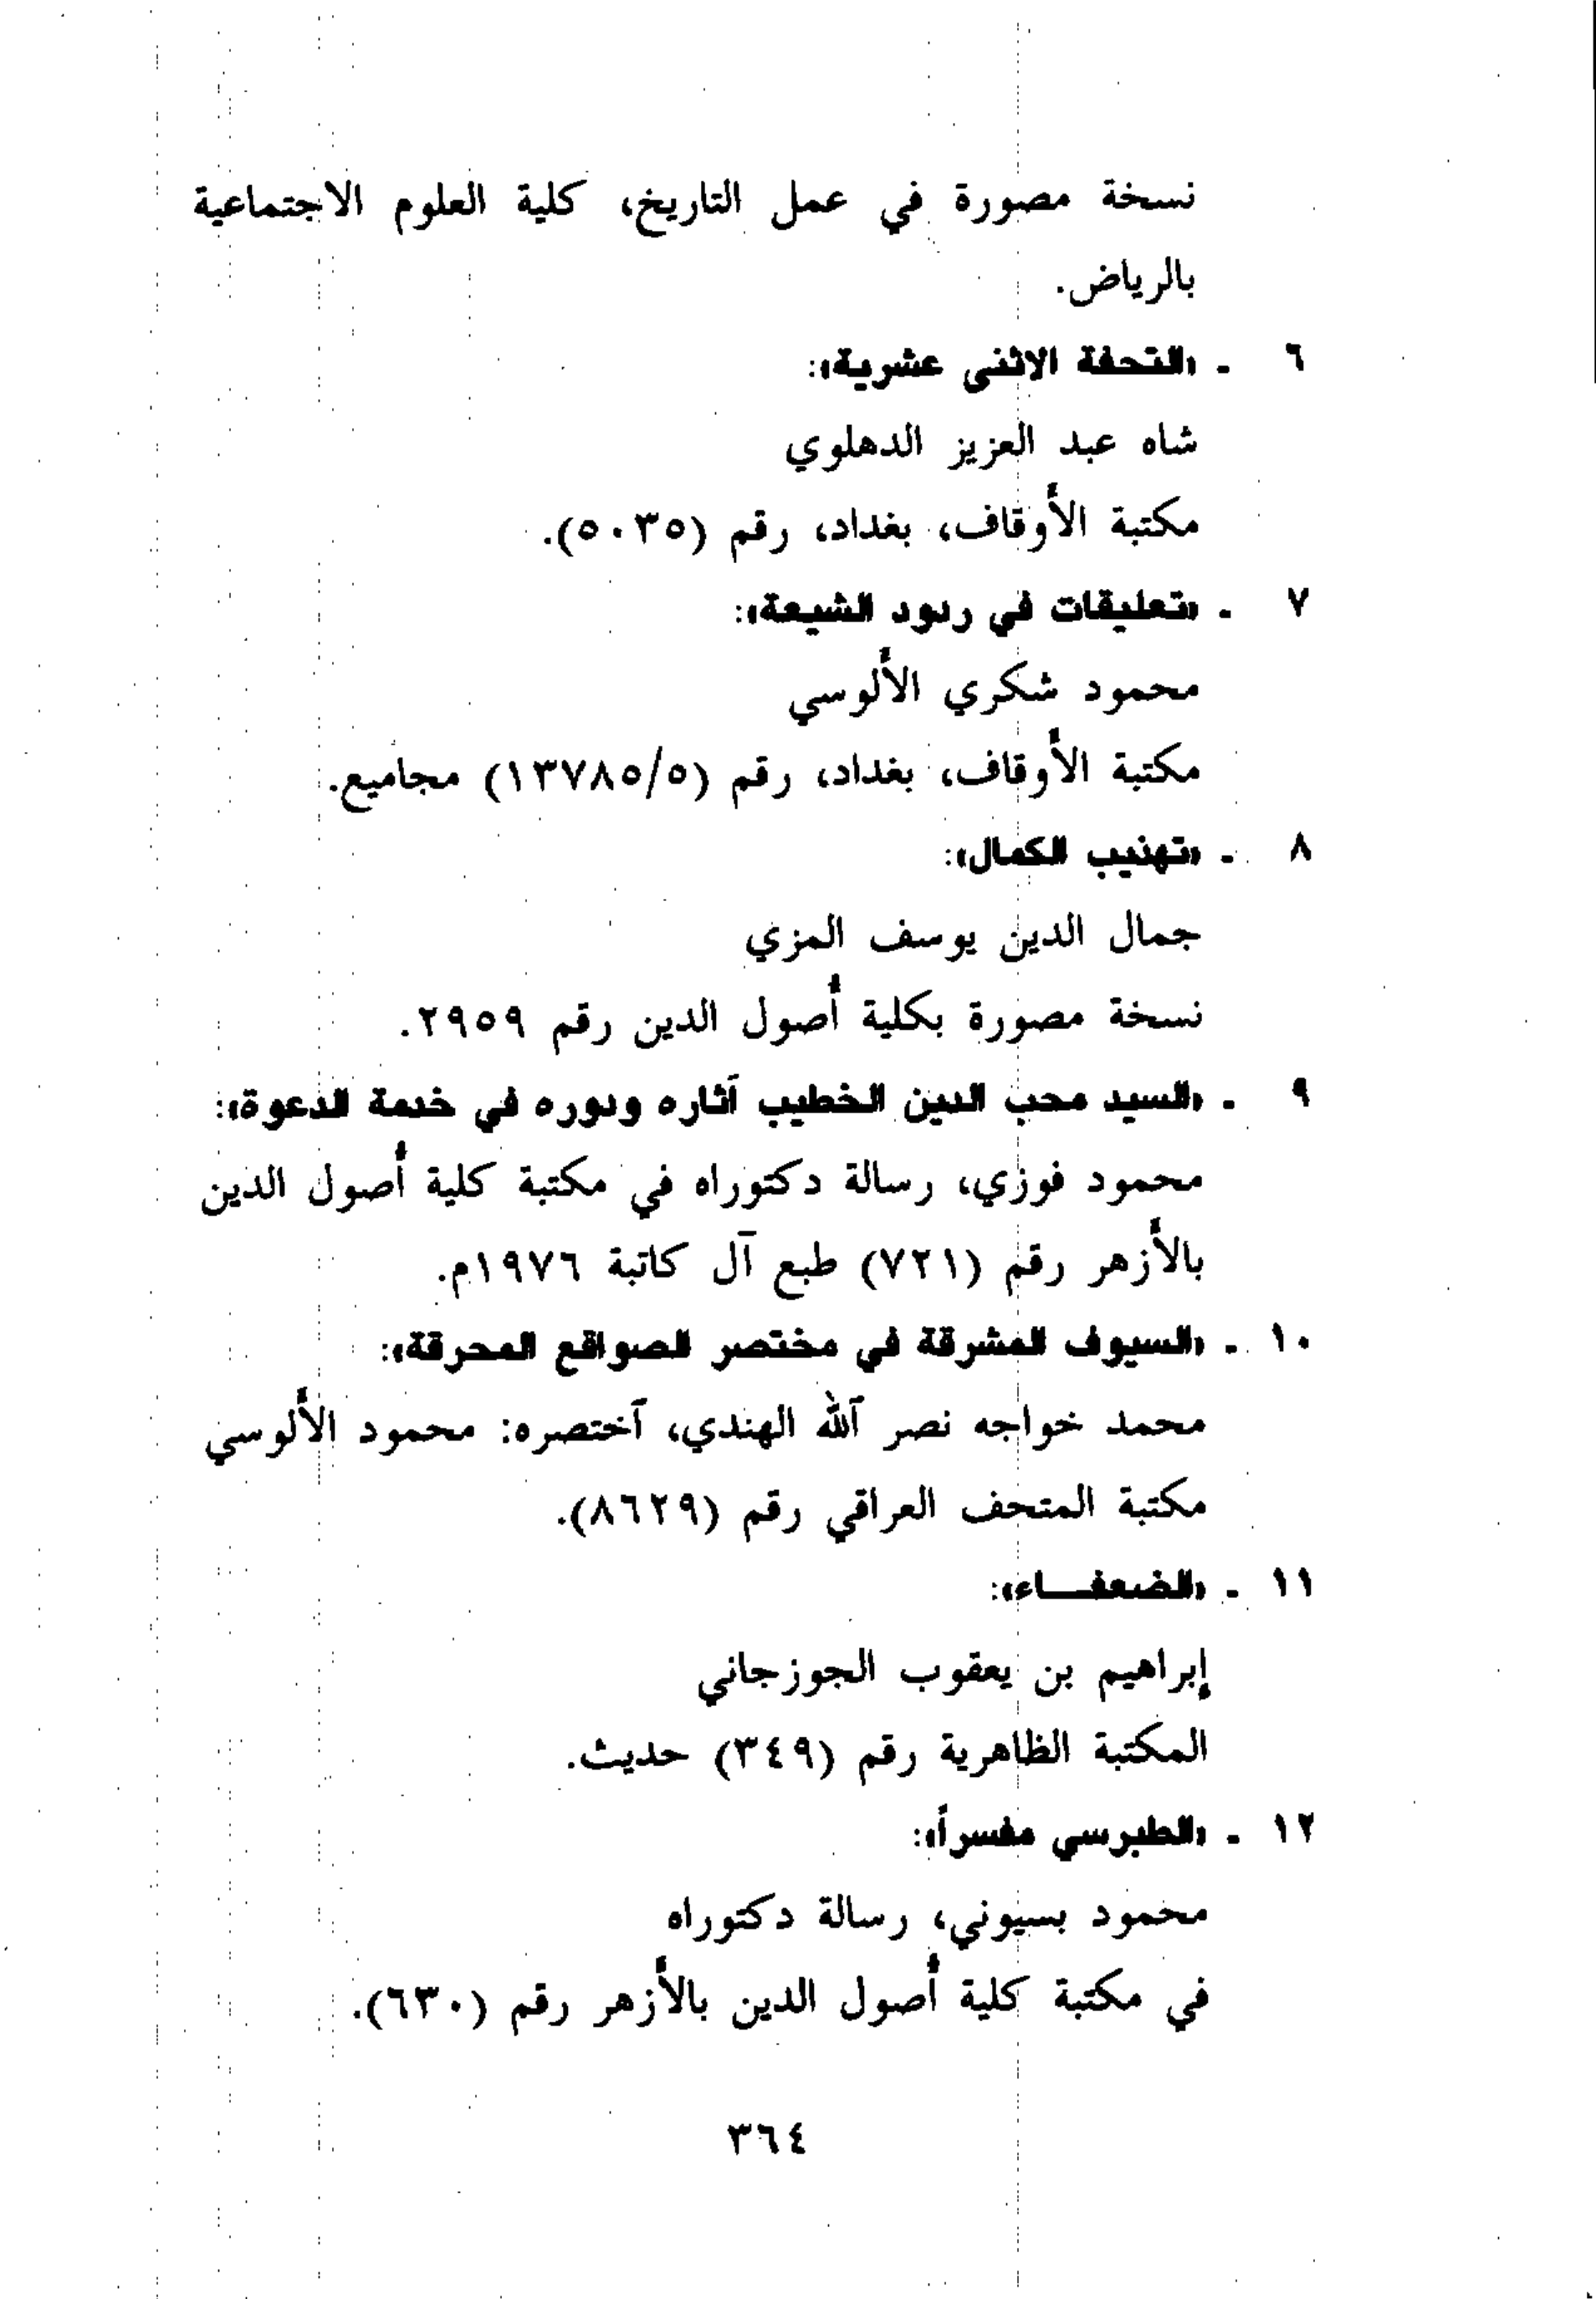 نسخة مصورة في عمل التاريخ، كلية العلوم الاجتماعية
بالرياض.
٦ - «التحفة الاثنى عشرية»:
شاه عبد العزيز الدهلوي
مكتبة الأوقاف، بغداد، رقم (٥٠٣٥).
٧ - «تعليقات في ردود الشيعة»:
محمود شكري الألوسي
مكتبة الأوقاف، بغداد، رقم (١٣٧٨٥/٥) مجاميع.
٨ - «تهذيب الكمال»:
جمال الدين يوسف المزي
نسخة مصورة بكلية أصول الدين رقم ٢٩٥٩.
٩ - «السيد محب الدين الخطيب آثاره ودوره في خدمة الدعوة»:
محمود فوزي، رسالة دكتوراه في مكتبة كلية أصول الدين
بالأزهر رقم (٧٢١) طبع آل كاتبة ١٩٧٦م.
١٠ - «السيوف المشرقة في مختصر الصواقع المحرقة»:
محمد خواجه نصر آلله الهندي، آختصره: محمود الألوسي
مكتبة المتحف العراقي رقم (٨٦٢٩).
١١ - «الضعفــاء»:
إبراهيم بن يعقوب الجوزجاني
المكتبة الظاهرية رقم (٣٤٩) حديث.
١٢ - «الطبرسي مفسراً»:
محمود بسيوني، رسالة دكتوراه
في مكتبة كلية أصول الدين بالأزهر رقم (٦٣٠).
٣٦٤